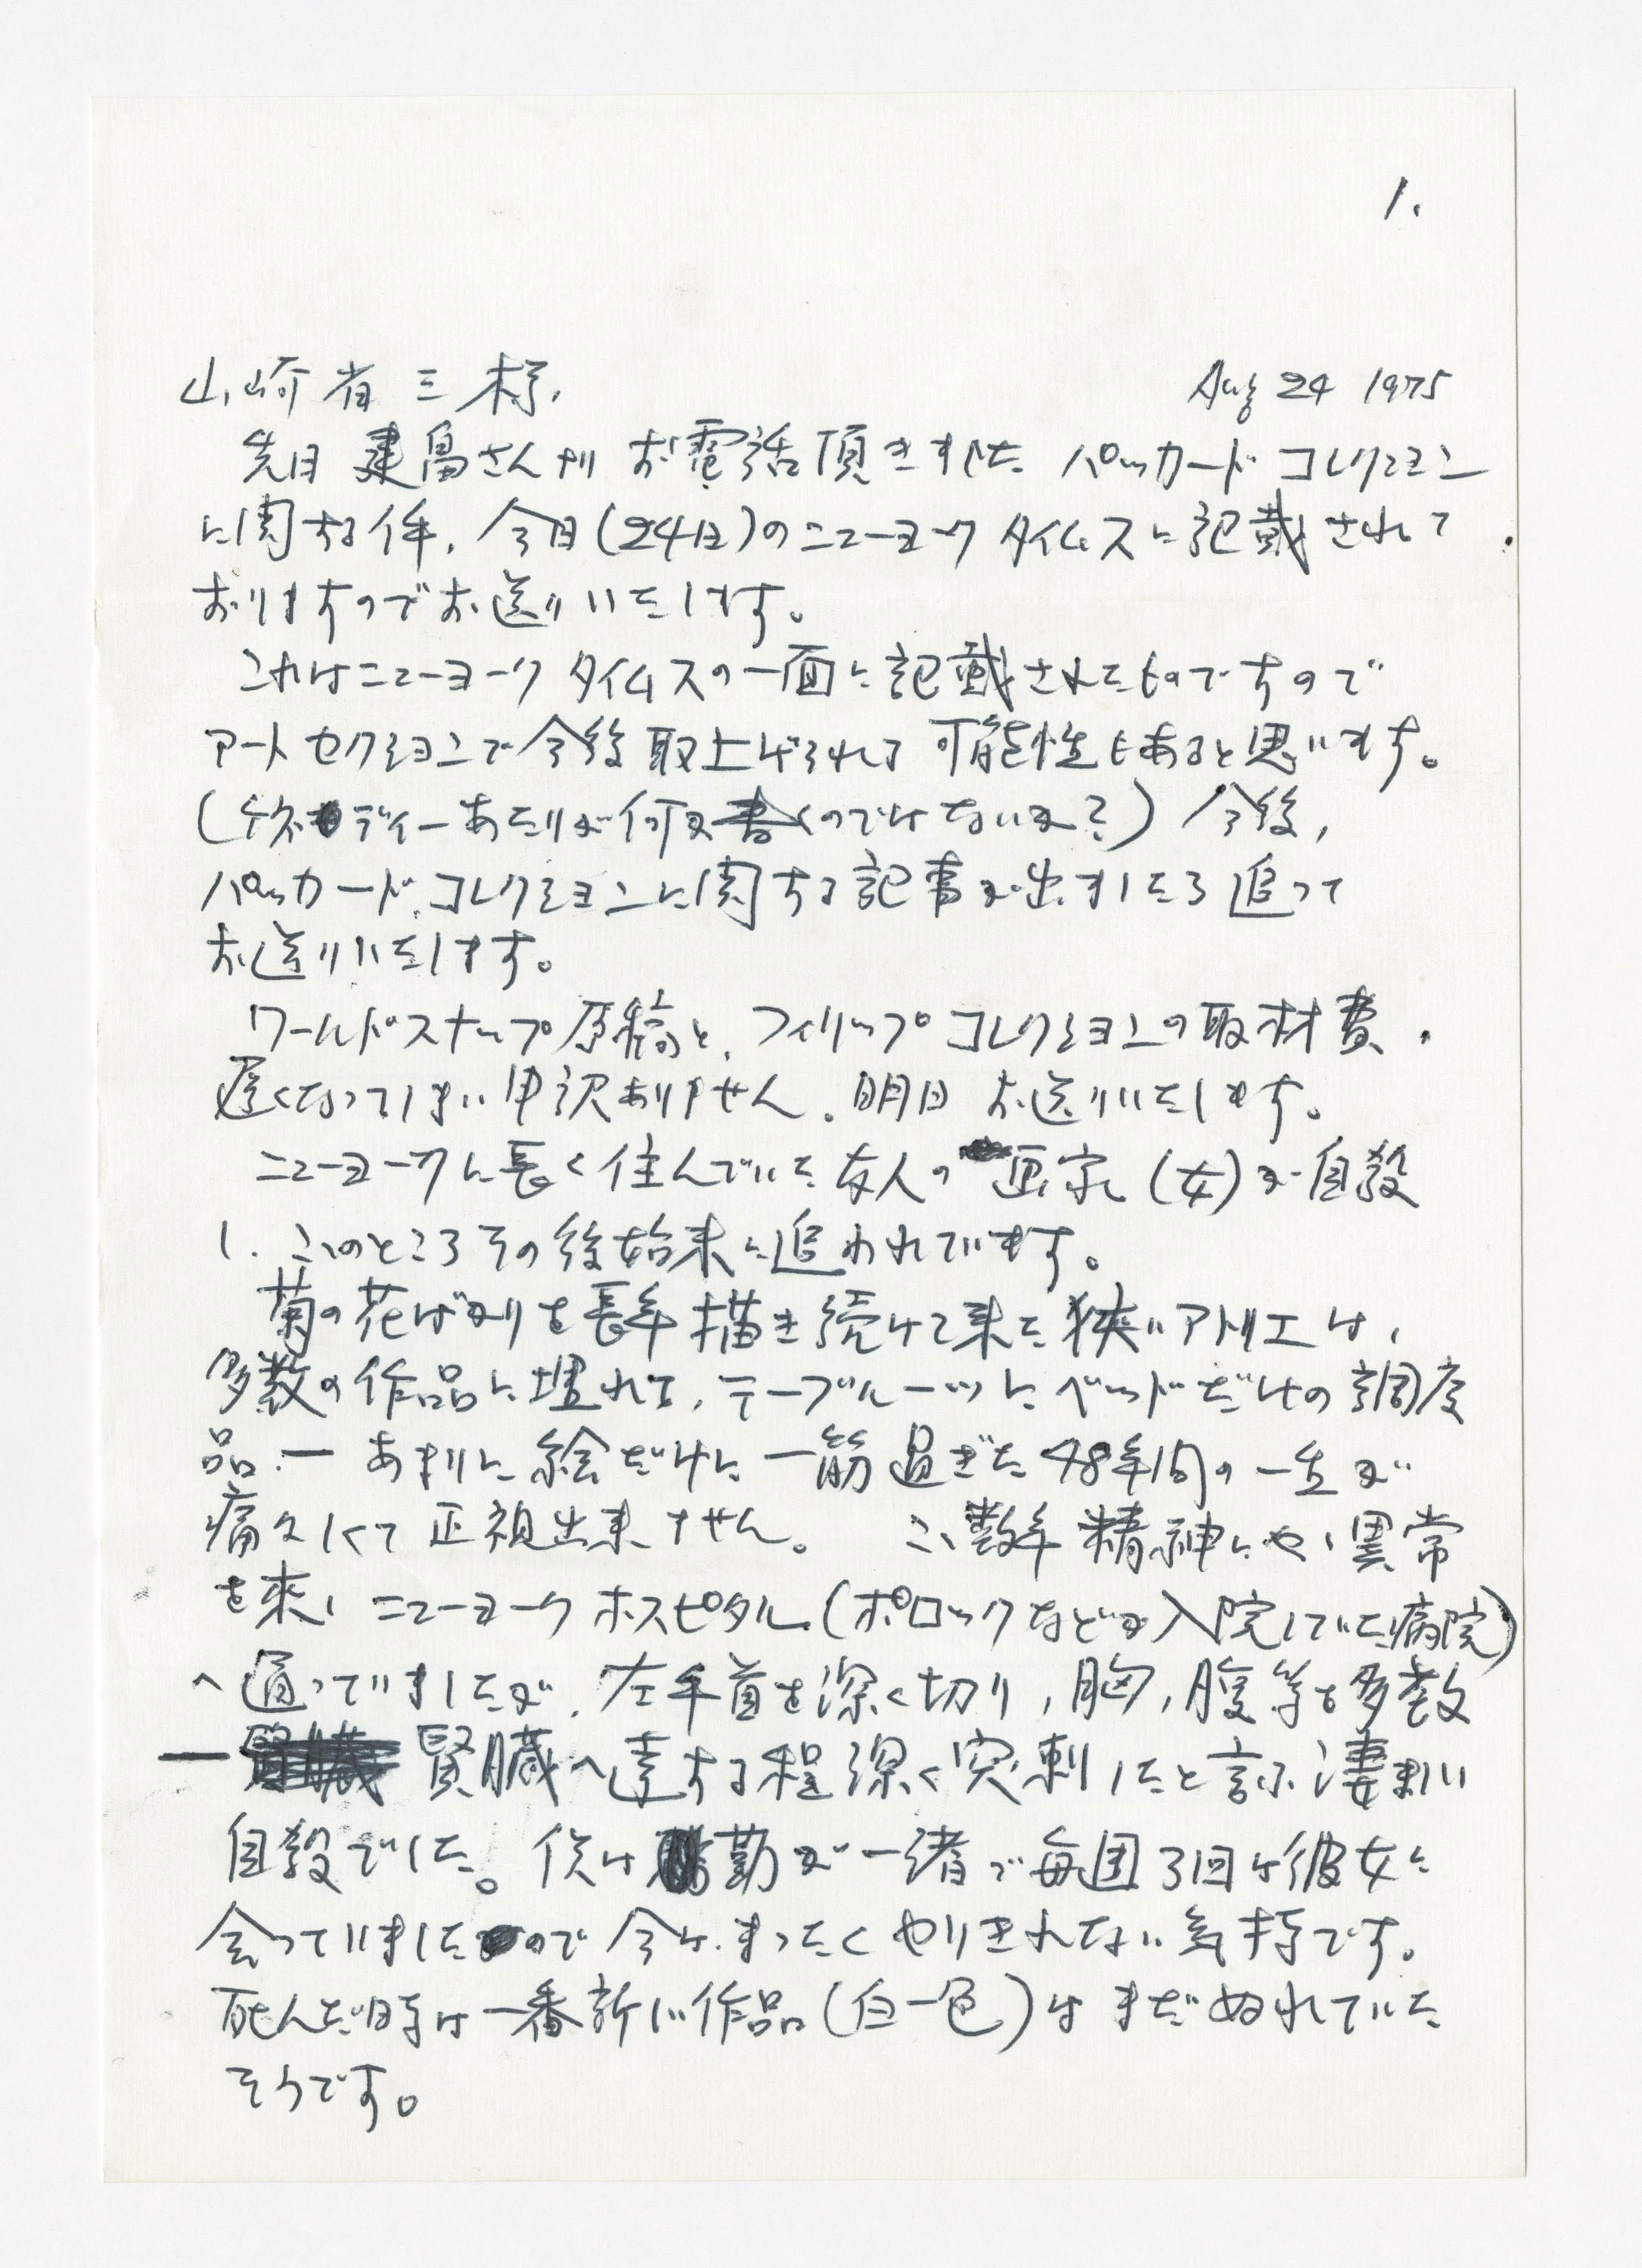 1.
山崎省三様、 Aug 24 1975
先日 建畠さんより お電話頂きました パッカード コレクション
に関する件、今日(24日)のニューヨーク タイムスに記載されて
おりますのでお送りいたします。
これはニューヨーク タイムスの一面に記載されたものですので
アート セクションで今後取上げられる 可能性もあると思います。
(ケネディーあたりが何か書くのではないか？) 今後、
パッカード コレクションに関する記事が出ましたら追って
お送りいたします。
ワールドスナップ原稿と、フィリップ コレクションの取材費、
遅くなってしまい申訳ありません。明日 お送りいたします。
ニューヨークに長く住んでいた友人の 画家(女)が自殺
し、このところその後始末に追われています。
菊の花ばかりを長年描き続けて来た狭いアトリエは、
多数の作品に埋れて、テーブル一ツにベッドだけの調度
品 ― あまりに絵だけに一筋過ぎた48年間の一生が
痛々しくて正視出来ません。 こゝ数年精神にやゝ異常
を来し ニューヨーク ホスピタル(ポロックなどが入院していた病院)
へ通っていましたが、左手首を深く切り、胸、腹等を多数
― 腎臓へ達する程深く突刺したと言ふ凄まじい
自殺でした。僕は 勤が一緒で毎週3回は彼女に
会っていましたので今はまったくやりきれない気持です。
死んだ時は一番新しい作品(白一色)はまだぬれていた
そうです。